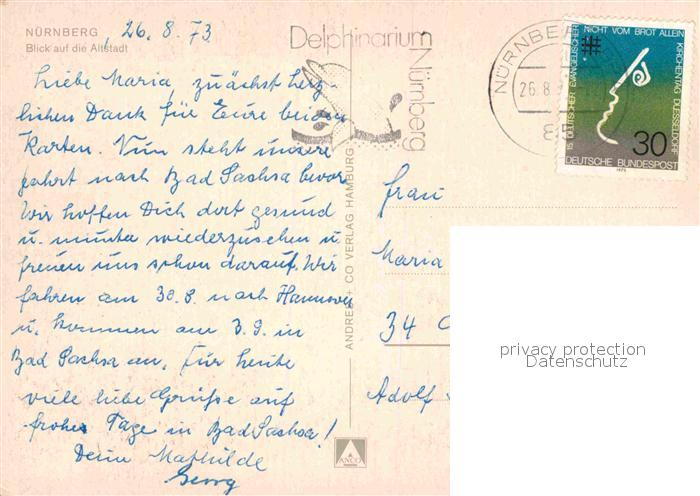 NÜRNBERG
Blick auf die Altstadt
, 26. 8. 73
Liebe Maria, zunächst herz-
lichen Dank für Eure beiden
Karten. Nun steht unsere
Fahrt nach Bad Sachsa bevor
Wir hoffen Dich dort gesund
u. munter wiederzusehen u.
freuen uns schon darauf. Wir
fahren am 30.8. nach Hannover
u. kommen am 3.9. in
Bad Sachsa an, für heute
viele liebe Grüße auf
frohe Tage in Bad Sachsa!
Deine Mathilde
Georg
Delphinarium
Nürnberg
ANDRES + CO VERLAG HAMBURG
ANCO
NÜRNBE
26.8.
NICHT VOM BROT ALLEIN
15. DEUTSCHER EVANGELISCHER
KIRCHENTAG DUESSELDORF
30
DEUTSCHE BUNDESPOST
1973
Frau
Maria
34 G
Adolf
privacy protection
Datenschutz